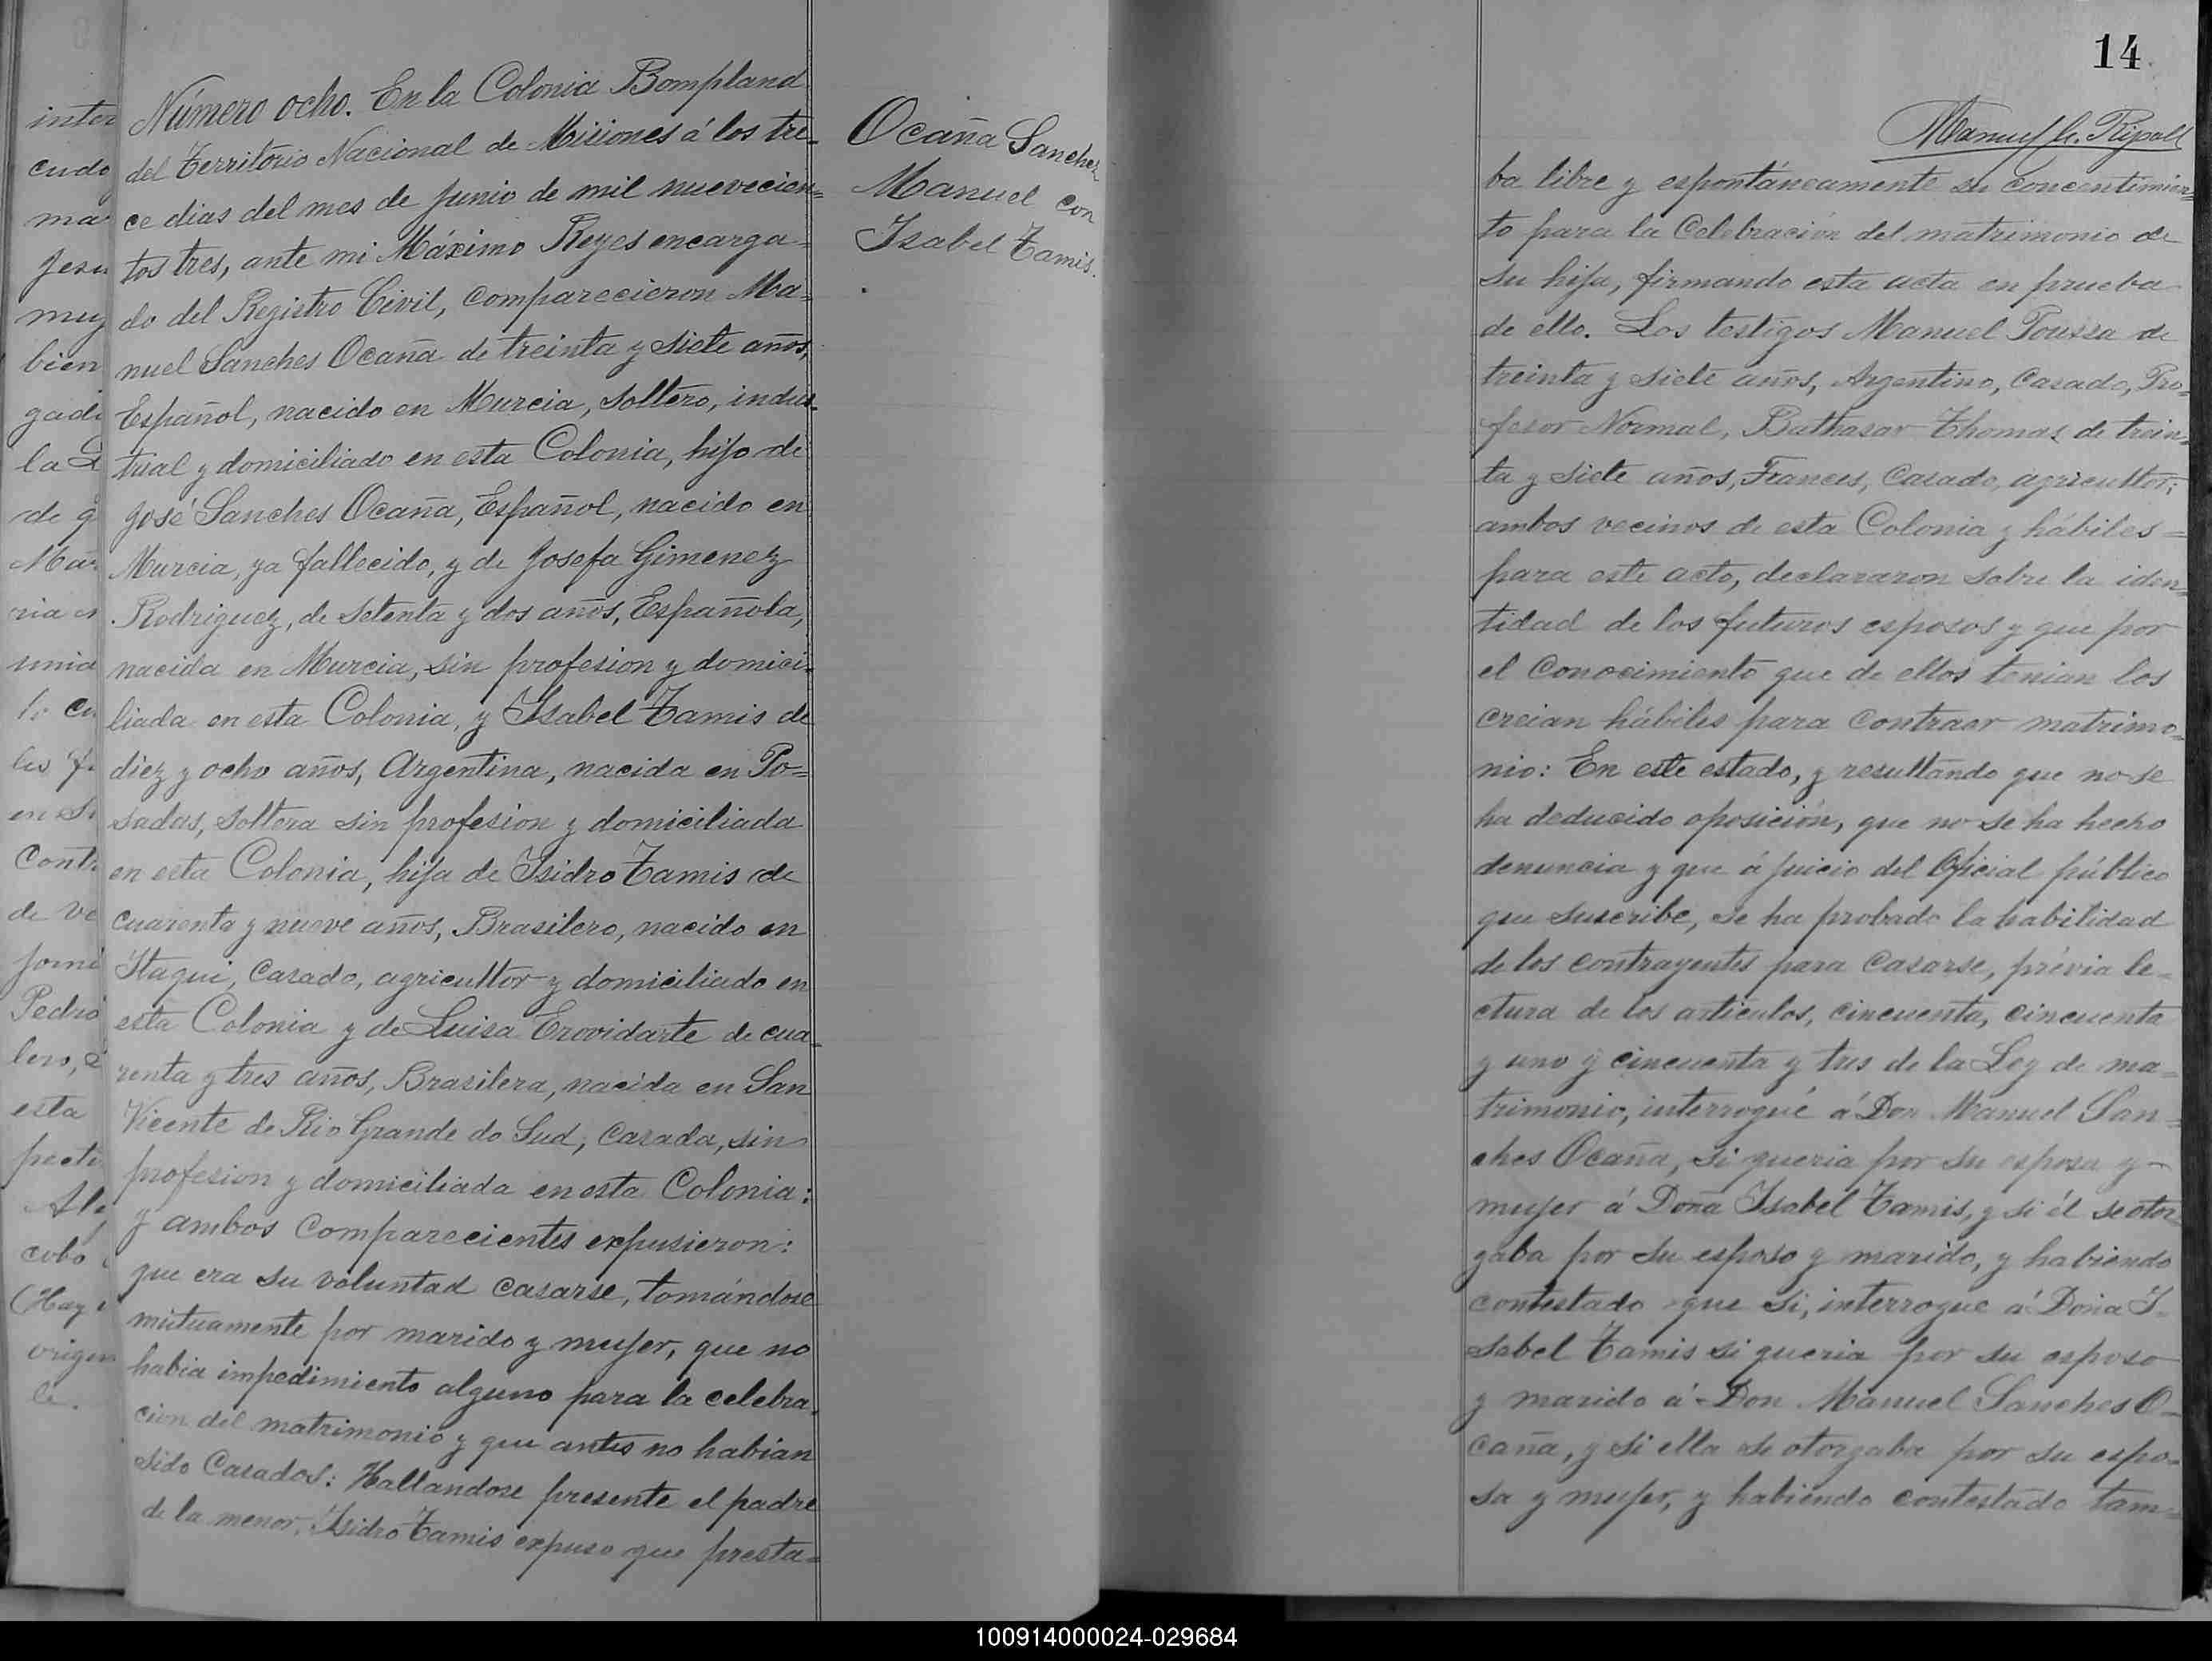 Número ocho. En la Colonia Bompland
del Territorio Nacional de Misiones á los tre-
ce dias del mes de Junio de mil novecien=
tos tres, ante mi Máximo Reyes encarga=
do del Registro Civil, comparecieron Ma=
nuel Sanches Ocaña de treinta y siete años,
Español, nacido en Murcia, soltero, indus-
trial y domiciliado en esta Colonia, hijo de
José Sanches Ocaña, Español, nacido en
Murcia, ya fallecido, y de Josefa Gimenez
Rodriguez, de setenta y dos años, Española,
nacida en Murcia, sin profesion y domici-
liada en esta Colonia, y Isabel Tamis de
diez y ocho años, Argentina, nacida en Po=
sadas, soltera sin profesion y domiciliada
en esta Colonia, hija de Isidro Tamis de
cuarenta y nueve años, Brasilero, nacido en
Itaqui, casado, agricultor y domiciliado en
esta Colonia y de Luisa Erovidarte de cua-
renta y tres años, Brasilera, nacida en San
Vicente de Rio Grande do Sud, casada, sin
profesion y domiciliada en esta Colonia:
y ambos comparecientes expusieron:
que era su voluntad casarse, tomándose
mutuamente por marido y mujer, que no
habia impedimiento alguno para la celebra-
cion del matrimonio y que antes no habian
sido casados: Hallandose presente el padre
de la menor, Isidro Tamis expuso que presta=
Ocaña Sanches
Manuel con
Isabel Tamis.
14
Manuel A. Ripoll
ba libre y espontáneamente su concentimien=
to para la celebración del matrimonio de
su hija, firmando esta acta en prueba
de ello. Los testigos Manuel Toussa de
treinta y siete años, Argentino, casado, Pro-
fesor Normal, Bathasar Thomas de trein-
ta y siete años, Frances, casado, agricultor;
ambos vecinos de esta Colonia y hábiles =
para este acto, declararon sobre la iden-
tidad de los futuros esposos y que por
el conocimiento que de ellos tenian los
creian hábiles para contraer matrimo-
nio: En este estado, y resultando que no se
ha deducido oposición, que no se ha hecho
denuncia y que á juicio del Oficial público
que suscribe, se ha probado la habilidad
de los contrayentes para casarse, prévia le-
ctura de los articulos, cincuenta, cincuenta
y uno y cincuenta y tres de la Ley de ma=
trimonio, interrogué á Don Manuel San=
ches Ocaña, si queria por su esposa y
mujer á Doña Isabel Tamis, y si él se otor-
gaba por su esposo y marido, y habiendo
contestado que si, interrogue á Doña I-
sabel Tamis si queria por su esposo
y marido á Don Manuel Sanches O-
caña, y si ella se otorgaba por su espo-
sa y mujer, y habiendo contestado tam-
100914000024-029684